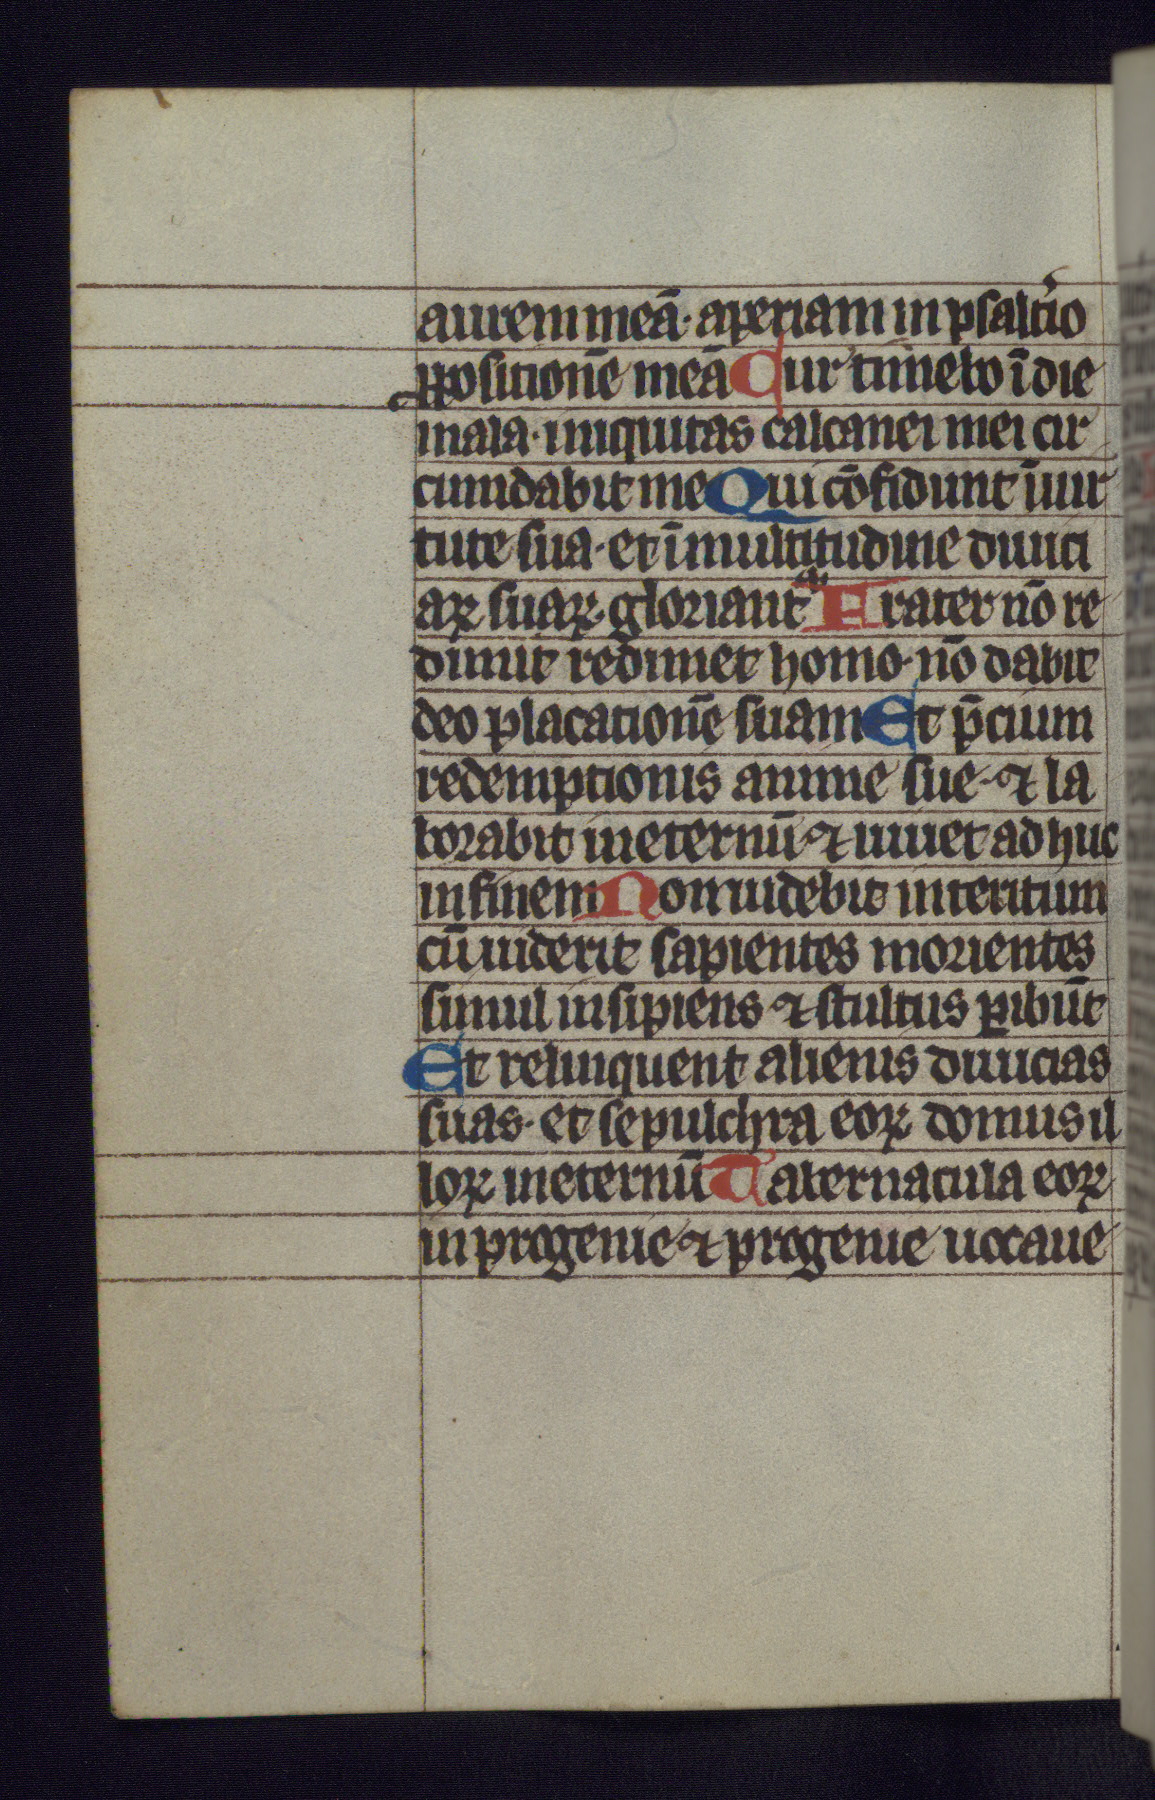 aurem meā· aperiam in psaltꝰio
ꝓpositionē meā Cur timebo ī die
mala· iniquitas calcanei mei cir
cumdabit me Qui cōfidunt ī uir
tute sua· et ī multitudine diuici
aꝝ suaꝝ· gloriant᷑ Frater nō re
dimit redimet homo· nō dabit
deo placationē suam Et p̄cium
redemptionis anime sue· ⁊ la
borabit in eternū ⁊ uiuet ad huc
in finem Non uidebit interitum
cū uiderit sapientes morientes
simul insipiens ⁊ stultus ꝑibūt
Et relinquent alienis diuicias
suas· et sepulchra eoꝝ domus il
loꝝ in eternū Tabernacula eoꝝ
in progenie ⁊ progenie uocaue